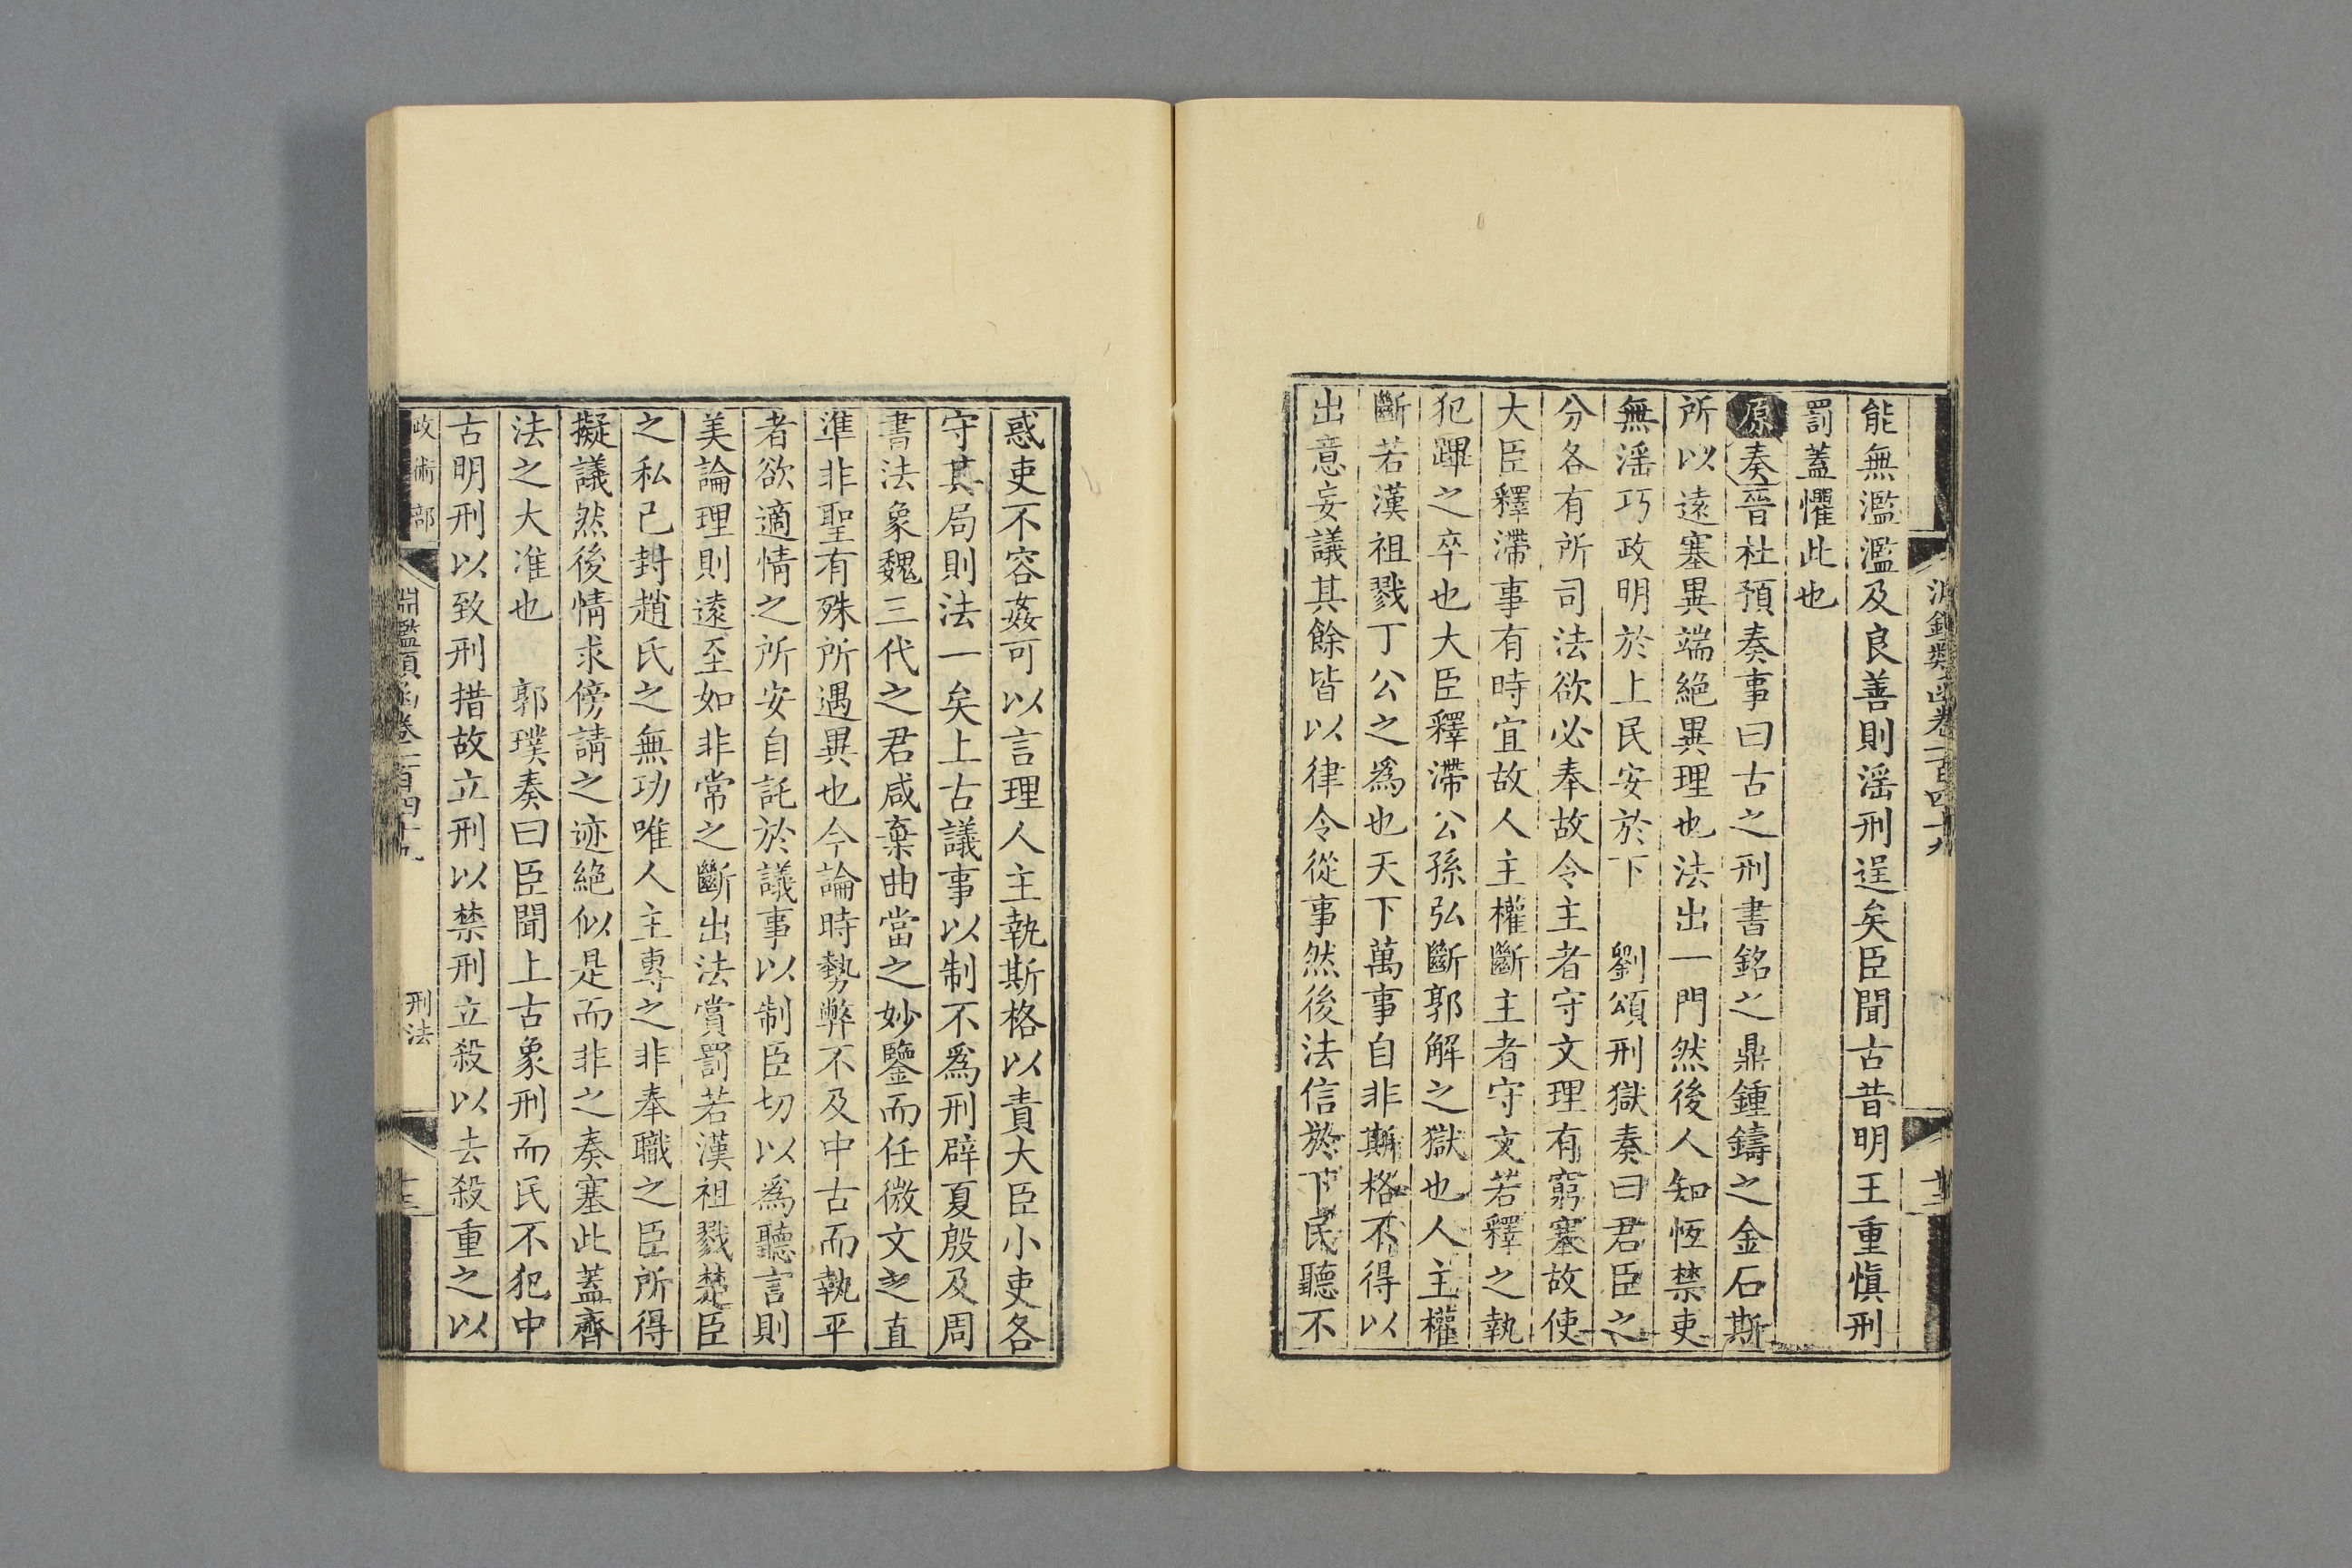 淵鑑類函卷一百四十九
能無濫濫及良善則淫刑逞矣臣聞古昔明王重愼刑
罰蓋懼此也
原奏晉杜預奏事曰古之刑書銘之鼎鍾鑄之金石斯
所以遠塞異端絶異理也法出一門然後人知恆禁吏
無淫巧政明於上民安於下　劉頌刑獄奏曰君臣之
分各有所司法欲必奉故令主者守文理有窮塞故使
大臣釋滯事有時宜故人主權斷主者守文若釋之執
犯蹕之卒也大臣釋滯公孫弘斷郭解之獄也人主權
斷若漢祖戮丁公之爲也天下萬事自非斯格不得以
出意妄議其餘皆以律令從事然後法信於下民聽不
惑吏不容姦可以言理人主執斯格以責大臣小吏各
守其局則法一矣上古議事以制不爲刑辟夏殷及周
書法象魏三代之君咸棄曲當之妙鑒而任微文之直
準非聖有殊所遇異也今論時勢弊不及中古而執平
者欲適情之所安自託於議事以制臣切以爲聽言則
美論理則遠至如非常之斷出法賞罰若漢祖戮楚臣
之私己封趙氏之無功唯人主專之非奉職之臣所得
擬議然後情求傍請之迹絶似是而非之奏塞此蓋齊
法之大准也　郭璞奏曰臣聞上古象刑而民不犯中
古明刑以致刑措故立刑以禁刑立殺以去殺重之以
政術部　淵鑑類函卷一百四十九　刑法